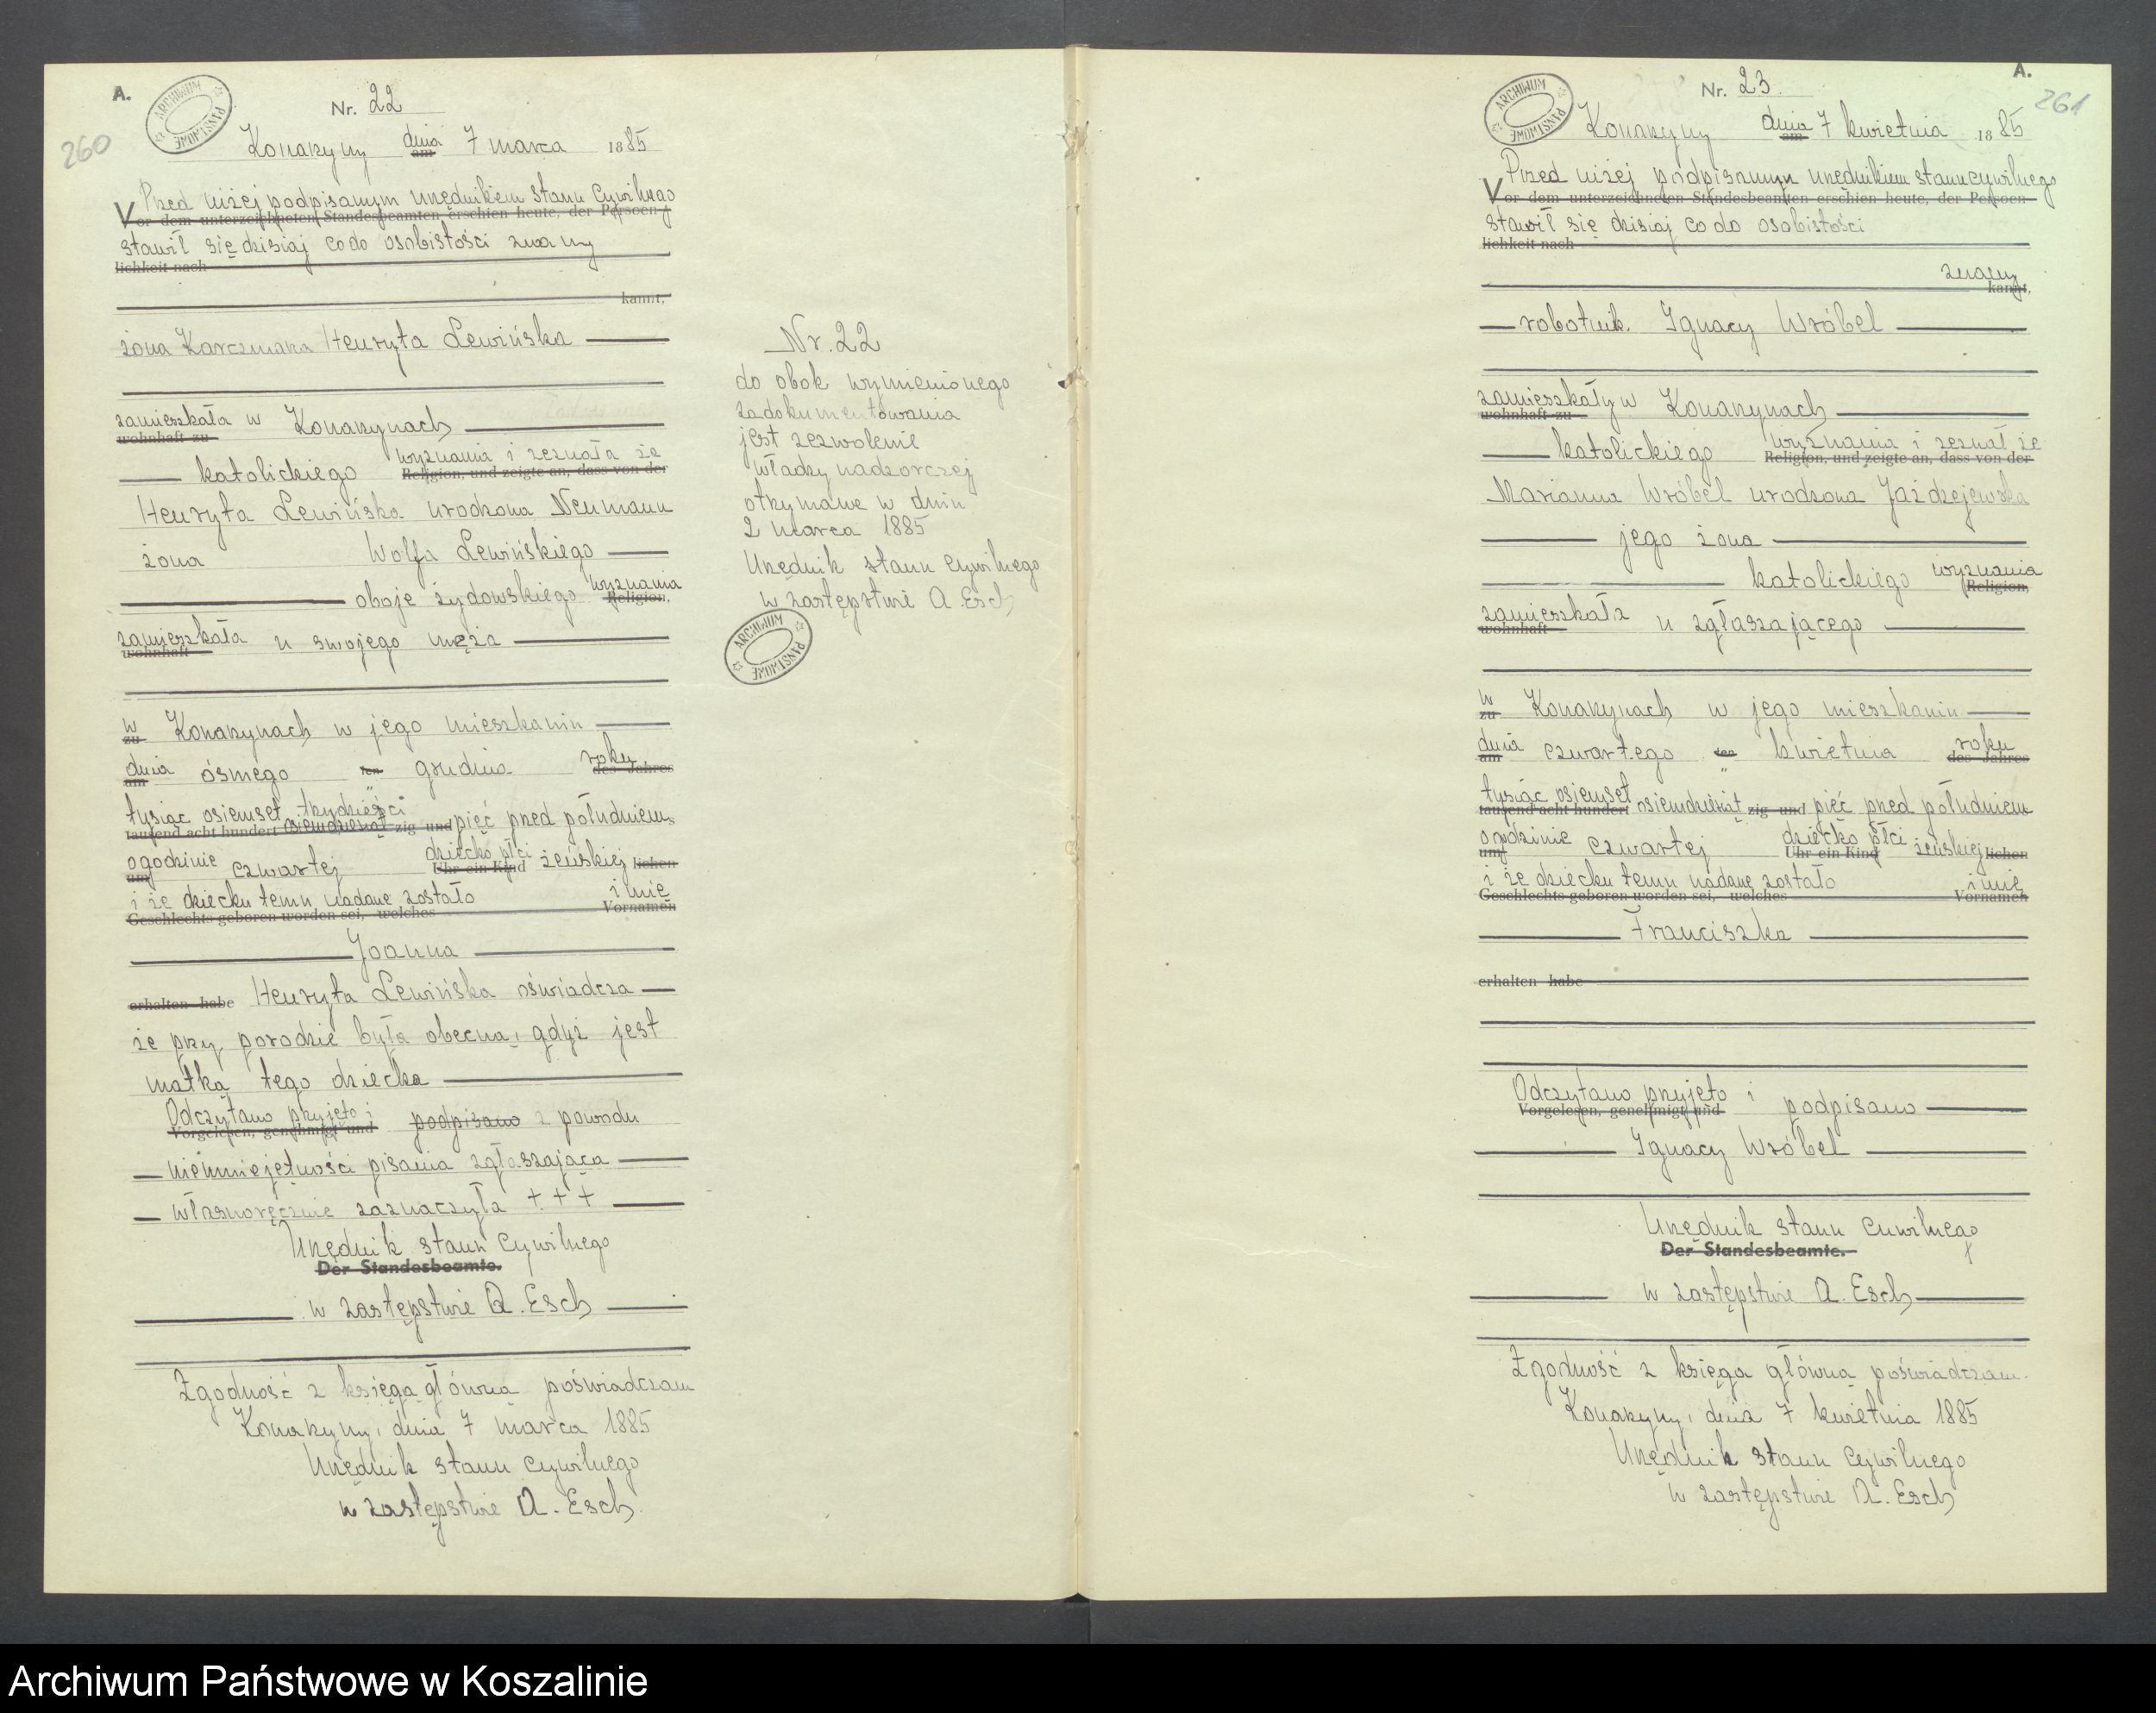 A.
ARCHIWUM PAŃSTWOWE
260
Nr. 22
Konarzyny dnia am 7 marca 1885
Przed niżej podpisanym urzędnikiem stanu cywilnego
Vor dem unterzeichneten Standesbeamten erschien heute, der Persoen-
stawił się dzisiaj co do osobistości znany
lichkeit nach
kannt,
żona Karczmarza Henryta Lewińska
zamieszkała w Konarzynach
wohnhaft zu
katolickiego wyznania i zeznała że
Religion, und zeigte an, dass von der
Henryta Lewińska urodzona Neumann
żona Wolfa Lewińskiego
oboje żydowskiego wyznania
Religion,
zamieszkała u swojego męża
wohnhaft
w Konarzynach w jego mieszkaniu
zu
dnia ósmego ten grudnia roku
am des Jahres
tysiąc osiemset trzydzieści
tausend acht hundert osiemdziesiąt zig und pięć przed południem
o godzinie czwartej dziecko płci żeńskiej lichen
um Uhr ein Kind
i że dziecku temu nadane zostało imię
Geschlechts geboren worden sei, welches Vornamen
Joanna
erhalten habe Henryta Lewińska oświadcza
że przy porodzie była obecna, gdyż jest
matką tego dziecka
Odczytano przyjęto i podpisano z powodu
Vorgelesen, genehmigt und
nieumiejętności pisania zgłaszająca
własnoręcznie zaznaczyła + + +
Urzędnik stanu cywilnego
Der Standesbeamte.
w zastępstwie A. Esch
Zgodność z księgą główną poświadczam
Konarzyny, dnia 7 marca 1885
Urzędnik stanu cywilnego
w zastępstwie A. Esch.
Nr. 22
do obok wymienionego
zadokumentowania
jest zezwolenie
władzy nadzorczej
otrzymane w dniu
2 marca 1885
Urzędnik stanu cywilnego
w zastępstwie A. Esch
ARCHIWUM PAŃSTWOWE
A.
ARCHIWUM PAŃSTWOWE
261
Nr. 23.
Konarzyny dnia am 7 kwietnia 1885
Przed niżej podpisanym urzędnikiem stanu cywilnego
Vor dem unterzeichneten Standesbeamten erschien heute, der Persoen-
stawił się dzisiaj co do osobistości
lichkeit nach
znany
kannt,
robotnik Ignacy Wróbel
zamieszkały w Konarzynach
wohnhaft zu
katolickiego wyznania i zeznał że
Religion, und zeigte an, dass von der
Marianna Wróbel urodzona Jażdżejewska
jego żona
katolickiego wyznania
Religion,
zamieszkała u zgłaszającego
wohnhaft
w Konarzynach w jego mieszkaniu
zu
dnia czwartego ten kwietnia roku
am des Jahres
tysiąc osiemset
tausend acht hundert osiemdziesiąt zig und pięć przed południem
o godzinie czwartej dziecko płci żeńskiej lichen
um Uhr ein Kind
i że dziecku temu nadane zostało imię
Geschlechts geboren worden sei, welches Vornamen
Franciszka
erhalten habe
Odczytano przyjęto i podpisano
Vorgelesen, genehmigt und
Ignacy Wróbel
Urzędnik stanu cywilnego
Der Standesbeamte.
w zastępstwie A. Esch
Zgodność z księgą główną poświadczam.
Konarzyny, dnia 7 kwietnia 1885
Urzędnik stanu cywilnego
w zastępstwie A. Esch
Archiwum Państwowe w Koszalinie